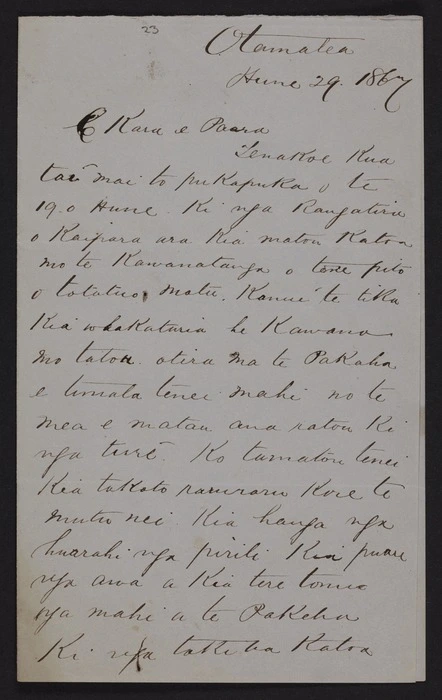 23
Otamatea
Hune 29. 1867
E Kara e Paora
Tenakoe Kua
tae mai to pukapuka o te
19. o Hune. Ki nga Rangatira
o Kaipara ara Kia matou Katoa
mo te Kawanatanga o tene pito
o totatuo motu. Kanui te tika
Kia whakaturia he Kawana
mo tatou. otira ma te Pakaha
e timata tenei mahi no te
mea e matau ana ratou Ki
nga ture. Ko tamatou tenei
Kia takoto raruraru Kore te
mutu nei Kia hanga nga
huarahi nga piriti Kia puare
nga awa a Kia tere tonu
nga mahi a te Pakeha
Ki nga takiha Katoa